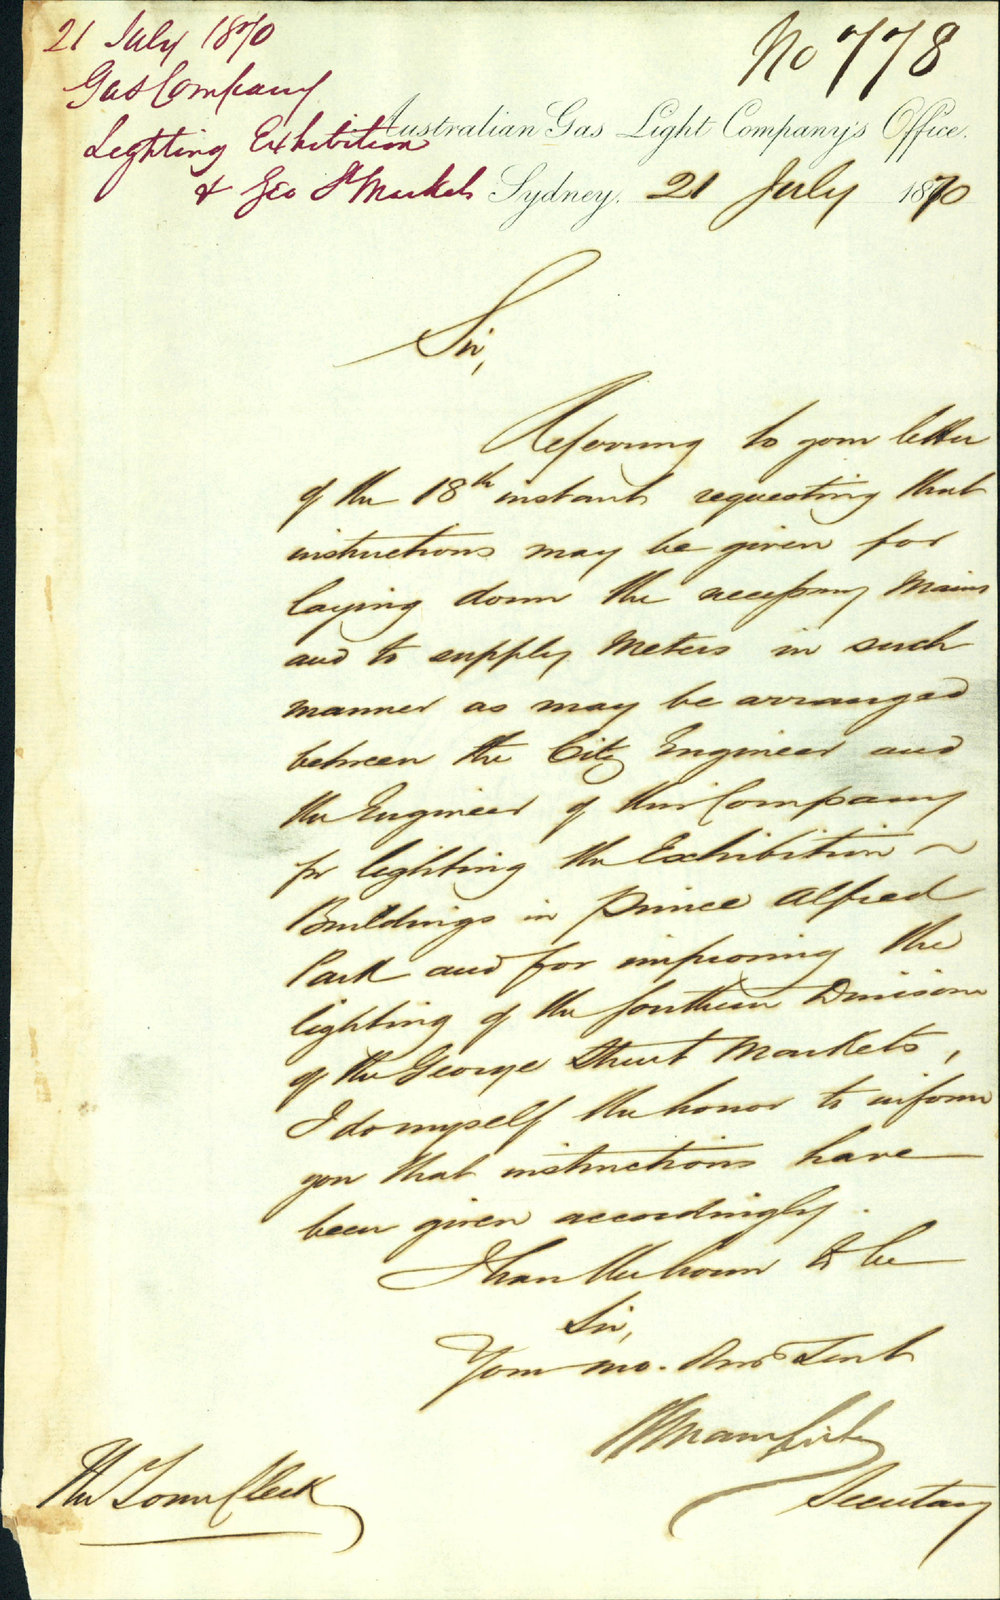 21 July 1870
Gas Company
Lighting Exhibition
& Geo St Markets
No 778
Australian Gas Light Company's Office.
Sydney. 21 July 1870
Sir,
Referring to your letter
of the 18th instant requesting that
instructions may be given for
laying down the necessary Mains
and to supply Meters in such
manner as may be arranged
between the City Engineer and
the Engineer of this Company
for lighting the Exhibition ~
Buildings in Prince Alfred
Park and for improving the
lighting of the Southern Division
of the George Street Markets,
I do myself the honor to inform
you that instructions have
been given accordingly.
I have the honor to be
Sir,
Your mo. Obt Servt
Secretary
The Town Clerk